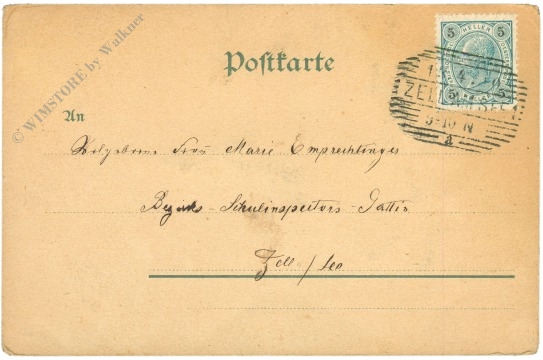 © WIMSTORE by Walkner
5 HELLER 5
Postkarte
ZELL AM SEE 1
5 5
An
9-10 N
a
Wolgeborne Frau Marie Emprechtinger
Bezirks-Schulinspectors-Gattin
Zell/See